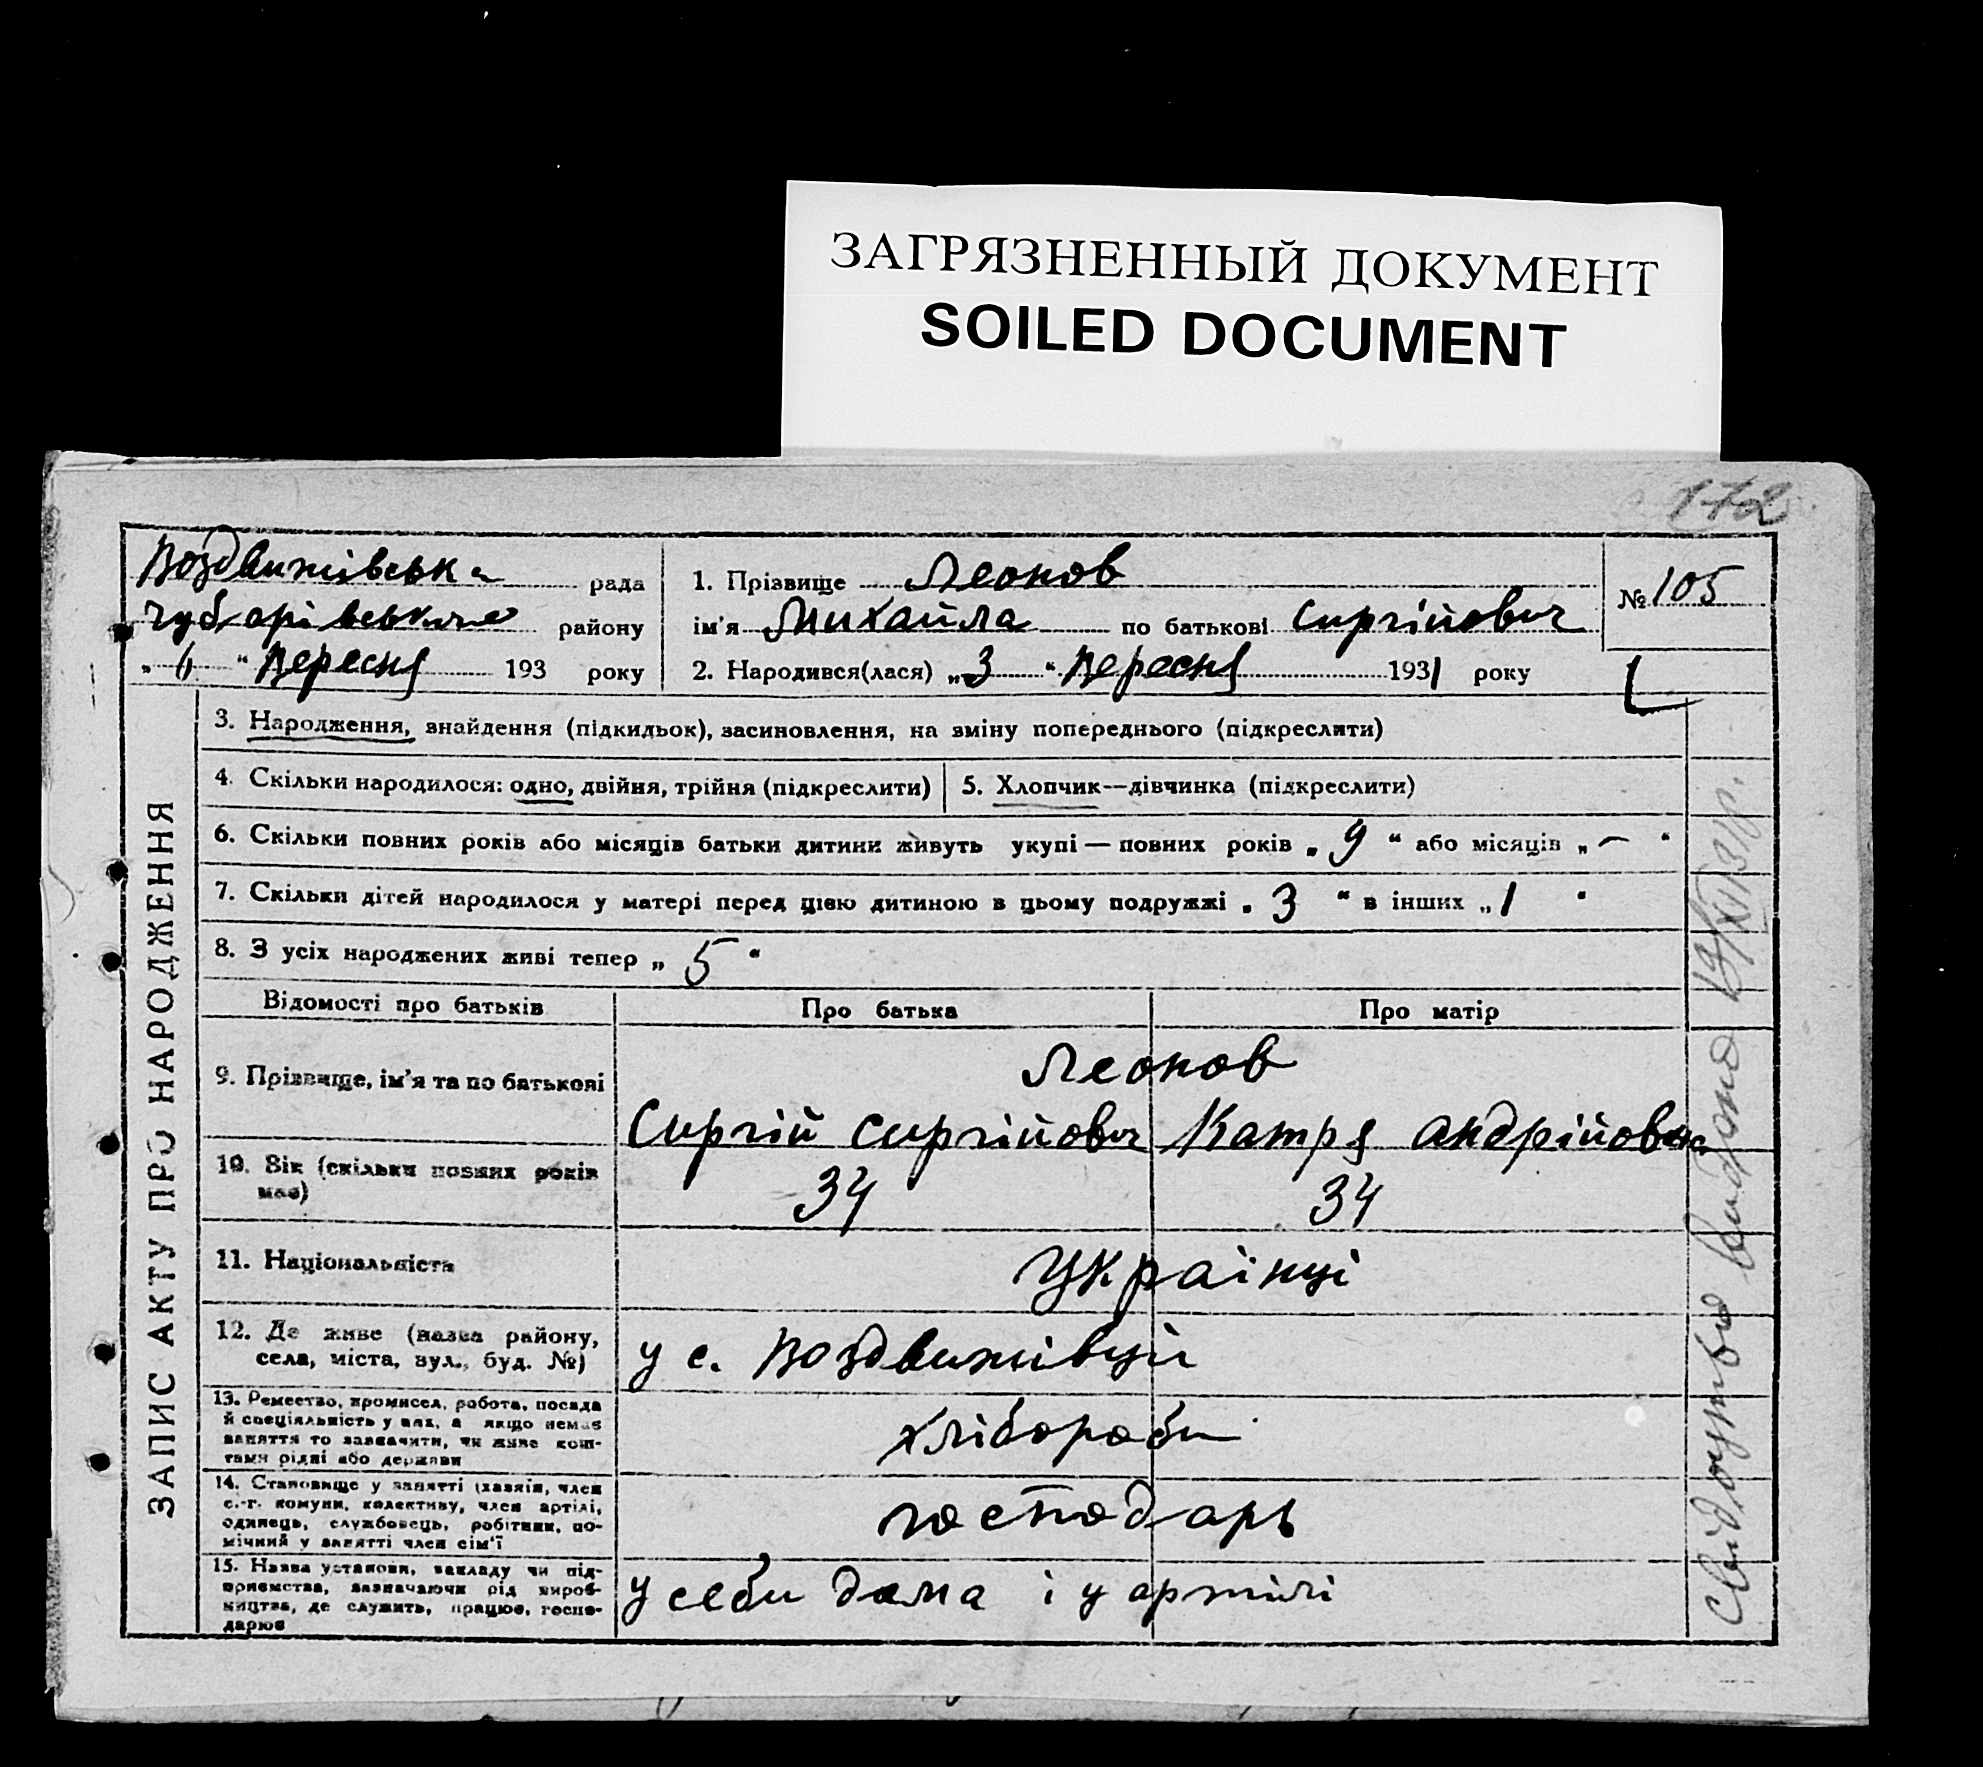 ЗАГРЯЗНЕННЫЙ ДОКУМЕНТ
SOILED DOCUMENT
172
Воздвижівська рада
Чубарівського району
„ 6 “ Вересня 193 року
1. Прізвище Леонов
ім'я Михайла по батькові Сиргійович
2. Народився(лася) „3“ Вересня 1931 року
№ 105
ЗАПИС АКТУ ПРО НАРОДЖЕННЯ
3. Народження, знайдення (підкидьок), засиновлення, на зміну попереднього (підкреслити)
4. Скільки народилося: одно, двійня, трійня (підкреслити)
5. Хлопчик—дівчинка (підкреслити)
6. Скільки повних років або місяців батьки дитини живуть укупі — повних років „ 9 “ або місяців „ — “
7. Скільки дітей народилося у матері перед цією дитиною в цьому подружжі „ 3 “ в інших „ 1 “
8. З усіх народжених живі тепер „ 5 “
Відомості про батьків Про батька Про матір
9. Прізвище, ім'я та по батькові
Леонов
Сиргій Сиргійович Катря Андрійовна
10. Вік (скільки повних років
має)
34 34
11. Національність
Українці
12. Де живе (назва району,
села, міста, вул., буд. №)
у с. Воздвижівцій
13. Ремество, промисел, робота, посада
й спеціяльність у них, а якщо немає
заняття то зазначити, чи живе кош-
тами рідні або держави
хлібороби
14. Становище у занятті (хазяїн, член
с.-г. комуни, колективу, член артілі,
одинець, службовець, робітник, по-
мічний у занятті член сім'ї
господарь
15. Назва установи, закладу чи під-
приємства, зазначаючи рід вироб-
ництва, де служить, працює, госпо-
дарює
у себи дома і у артілі
Свідоцтво видано